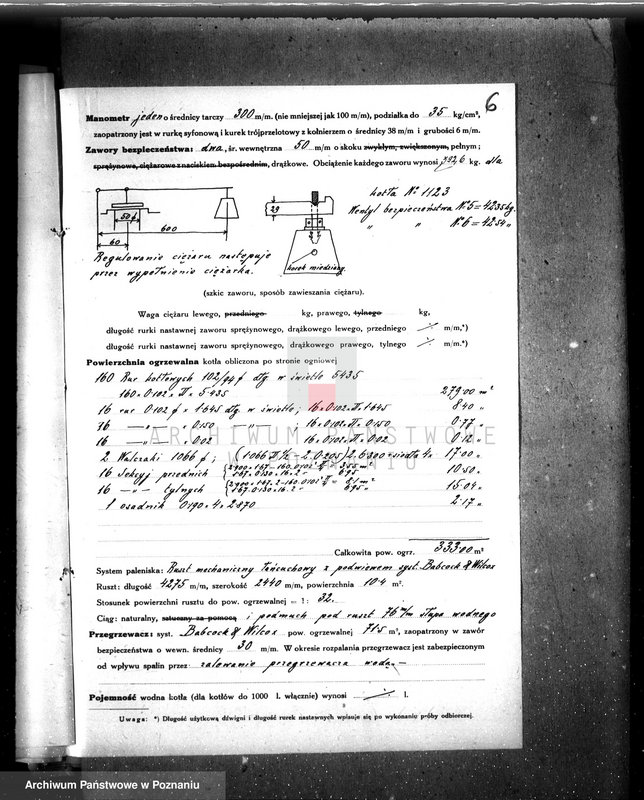 6
Manometr jeden o średnicy tarczy 300 m/m. (nie mniejszej jak 100 m/m), podziałka do 35 kg/cm²,
zaopatrzony jest w rurkę syfonową i kurek trójprzelotowy z kołnierzem o średnicy 38 m/m i grubości 6 m/m.
Zawory bezpieczeństwa: dwa, śr. wewnętrzna 50 m/m o skoku zwykłym, zwiększonym, pełnym;
sprężynowe, ciężarowe z naciskiem bezpośrednim, drążkowe. Obciążenie każdego zaworu wynosi 392,6 kg. dla
kotła № 1123
Wentyl bezpieczeństwa № 5 = 42.35 kg.
" " № 6 = 42.54 "
50 ϕ
600
60
29
Regulowanie ciężaru następuje
przez wypełnienie ciężarka.
korek miedziany
(szkic zaworu, sposób zawieszania ciężaru).
Waga ciężaru lewego, przedniego kg, prawego, tylnego kg,
długość rurki nastawnej zaworu sprężynowego, drążkowego lewego, przedniego m/m,*)
długość rurki nastawnej zaworu sprężynowego, drążkowego prawego, tylnego m/m.*)
Powierzchnia ogrzewalna kotła obliczona po stronie ogniowej
160 Rur kotłowych 102/94 ϕ dłg. w świetle 5435
160 × 0.102 × π × 5.435 279.00 m²
16 rur 0.102 ϕ × 1.645 dłg. w świetle; 16 × 0.102 × π × 1.645 8.40 "
36 —"— × 0.150 —"— 16 × 0.102 × π × 0.150 0.77 "
16 —"— × 0.02 16 × 0.102 × π × 0.02 0.12 "
2 Walczaki 1066 ϕ; 17.00 "
16 Sekcyj przednich 10.50 "
16 —"— tylnych 15.04 "
1 osadnik 0.190 × 4 × 2.870 2.17 "
ARCHIWUM PAŃSTWOWE
W POZNANIU
Całkowita pow. ogrz. 333.00 m²
System paleniska: Ruszt mechaniczny łańcuchowy z podwiewem syst. Babcock & Wilcox
Ruszt: długość 4275 m/m, szerokość 2440 m/m, powierzchnia 10.4 m².
Stosunek powierzchni rusztu do pow. ogrzewalnej = 1: 32.
Ciąg: naturalny, sztuczny za pomocą i podmuch pod ruszt 76 m/m słupa wodnego
Przegrzewacz: syst. Babcock & Wilcox pow. ogrzewalnej 71.5 m², zaopatrzony w zawór
bezpieczeństwa o wewn. średnicy 30 m/m. W okresie rozpalania przegrzewacz jest zabezpieczonym
od wpływu spalin przez zalewanie przegrzewacza wodą. —
Pojemność wodna kotła (dla kotłów do 1000 l. włącznie) wynosi l.
Uwaga: *) Długość użytkową dźwigni i długość rurek nastawnych wpisuje się po wykonaniu próby odbiorczej.
Archiwum Państwowe w Poznaniu